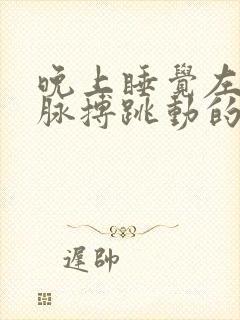 晚上睡覺左
脉搏跳動的
遅帥